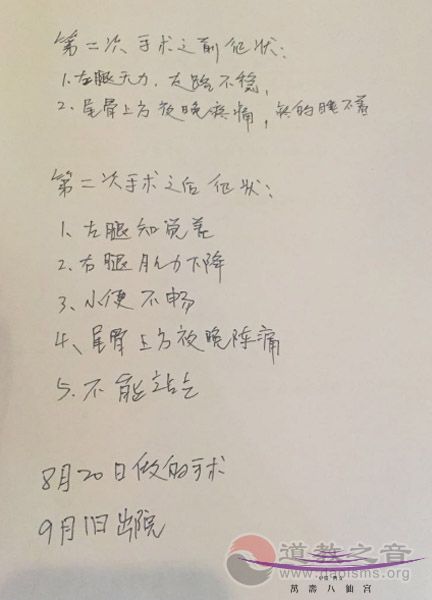 第二次手术之前症状：
1、左腿无力，走路不稳，
2、尾骨上方夜晚疼痛，疼的睡不着
第二次手术之后症状：
1、左腿知觉差
2、右腿肌力下降
3、小便不畅
4、尾骨上方夜晚阵痛
5、不能站立
8月20日做的手术
9月1日出院
道教之音
www.daoisms.org
萬壽八仙宮